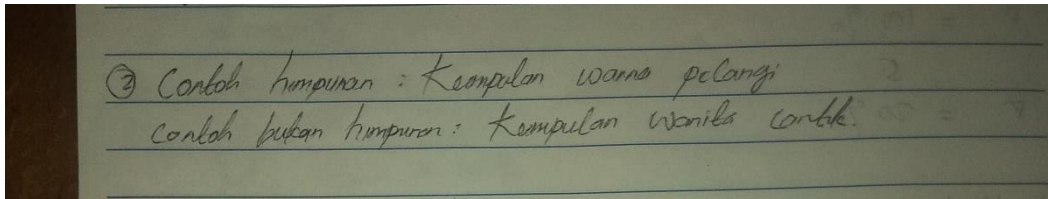 ② Contoh himpunan : Kumpulan warna pelangi
contoh bukan himpunan : Kumpulan wanita cantik.